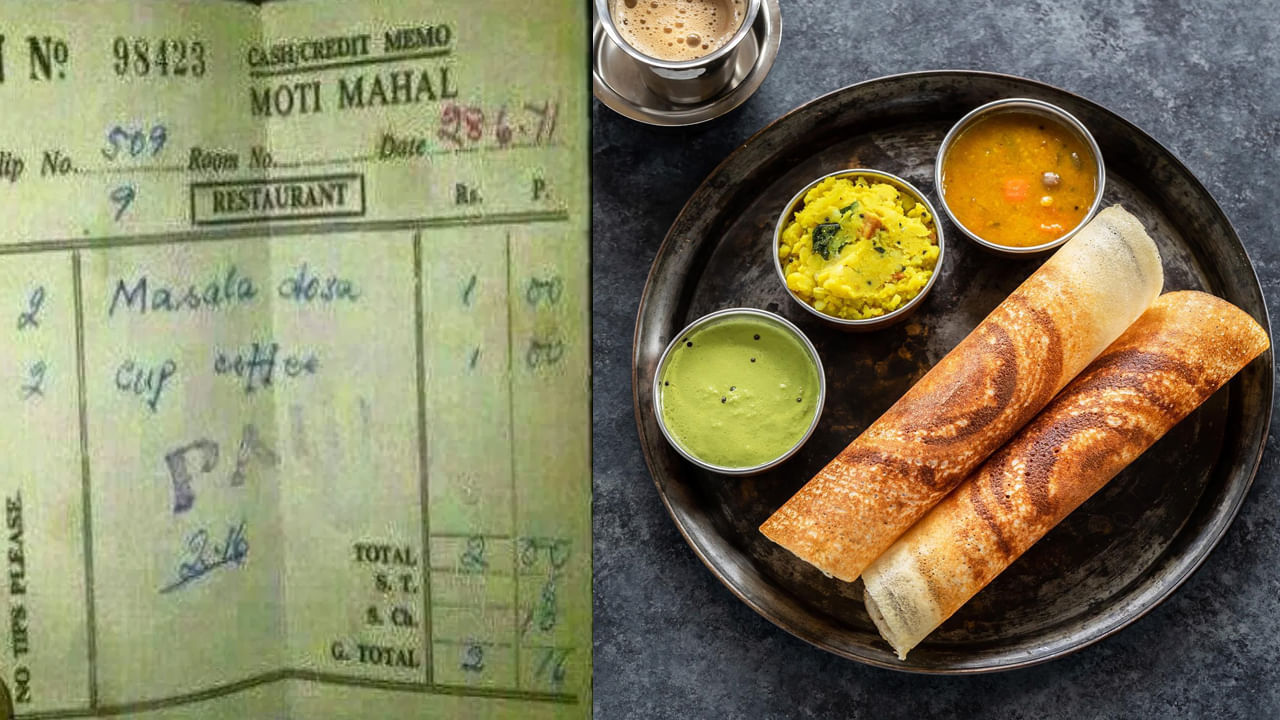 Nº 98423 CASH/CREDIT MEMO
MOTI MAHAL
lip No. 509 Room No. Date 28 6-71
9 RESTAURANT Rs. P.
2 Masala dosa 1 00
2 cup coffee 1 00
2-16
TOTAL 2 00
S. T.
S. Ch.
G. TOTAL 2 16
NO TIPS PLEASE